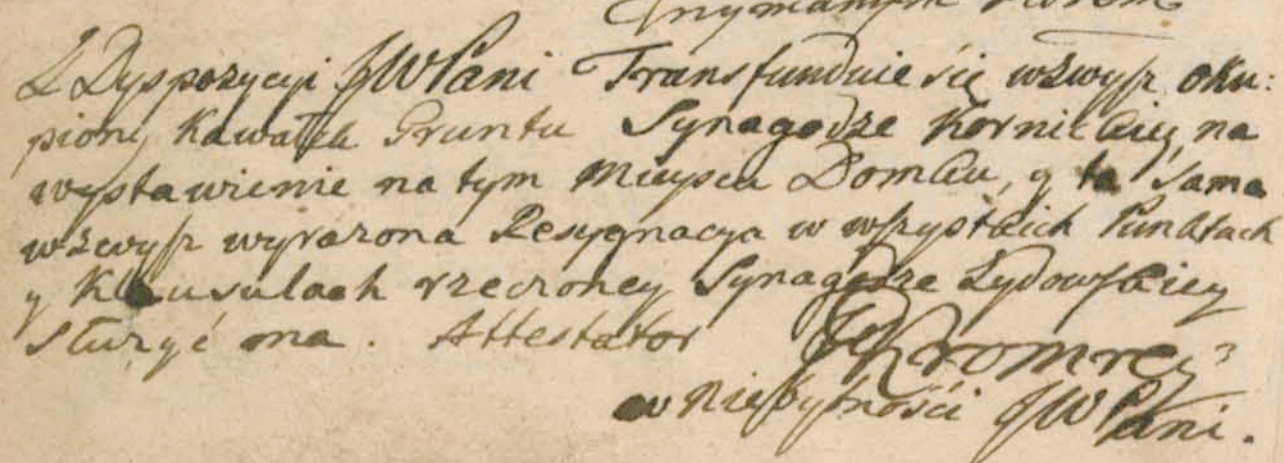 Z Dyspozycyi JWPani Transfunduie się wzwysz oku:
piony Kawałek Gruntu Synagodze Kornickiey, na
wystawienie na tym Mieyscu Domku, y ta sama
wzwysz wyrazona Resygnacya w wszystkich Punktach
y Klausulach rzeczoney Synagodze Zydowskiey
służyć ma. Attestator
w Niebytności JWPani.